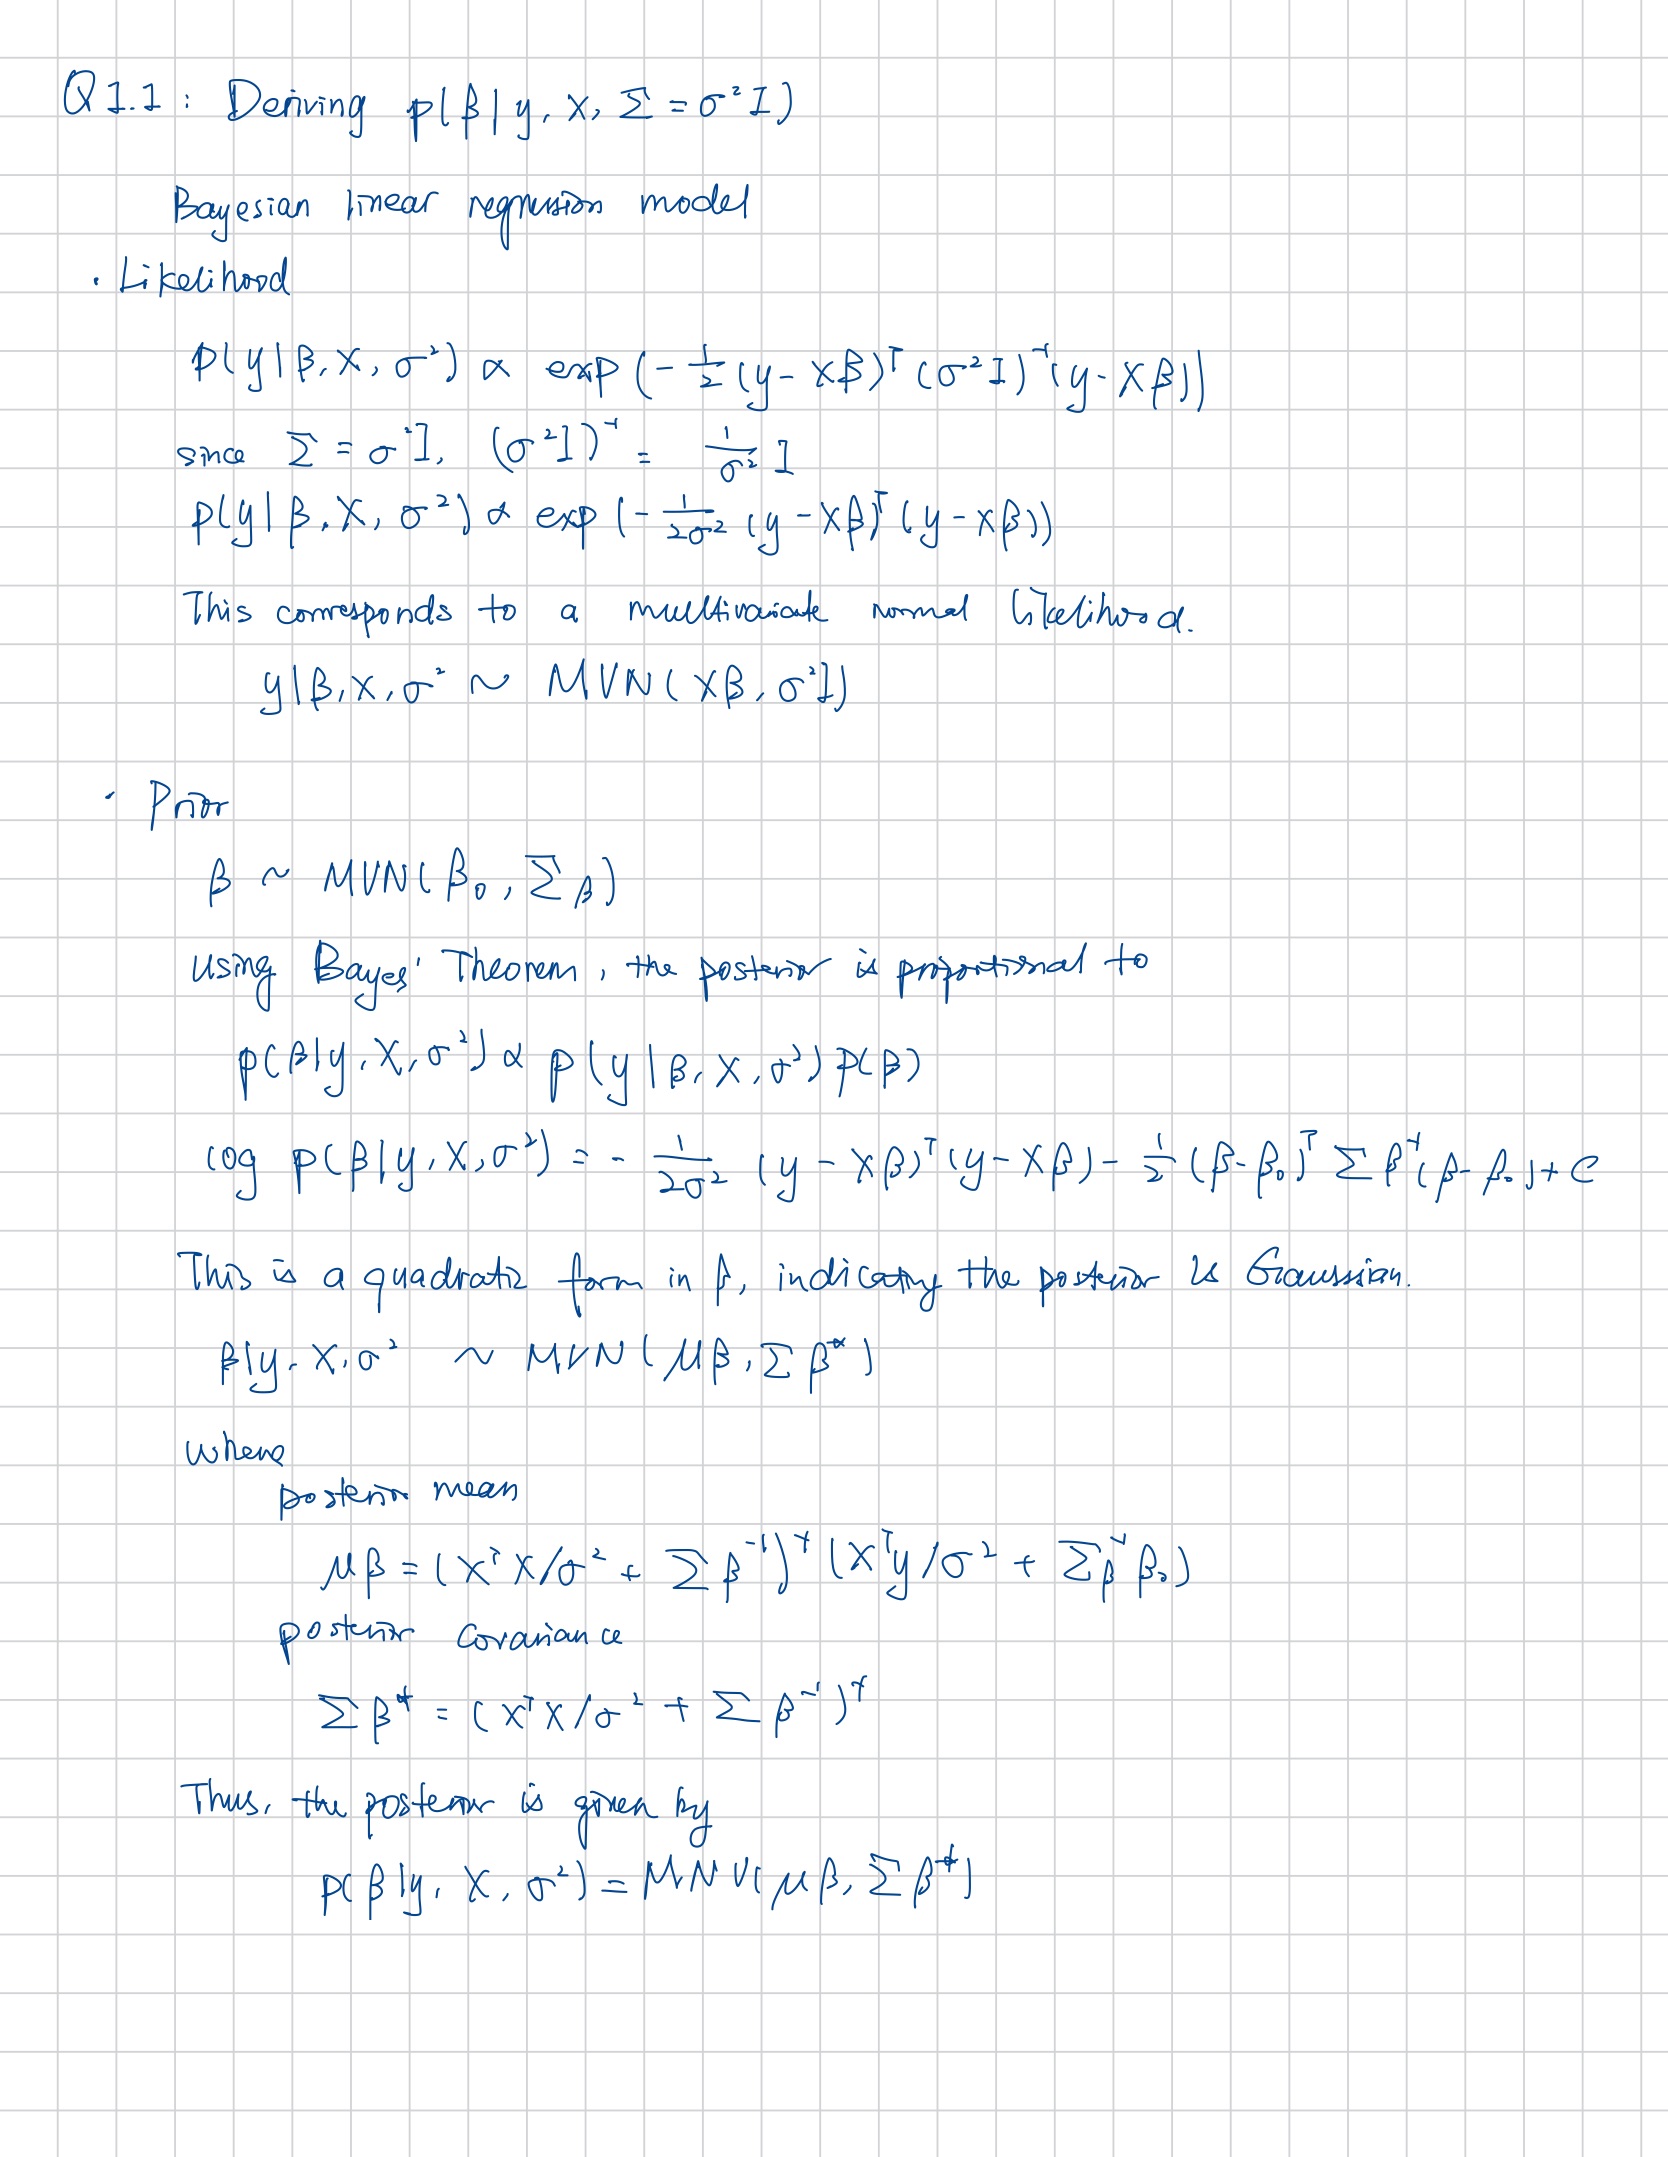 Q1.1: Deriving p(β|y, X, Σ = σ²I)
Bayesian linear regression model
· Likelihood
p(y|β, X, σ²) ∝ exp(-½(y-Xβ)ᵀ(σ²I)⁻¹(y-Xβ))
since Σ = σ²I, (σ²I)⁻¹ = 1/σ² I
p(y|β, X, σ²) ∝ exp(-1/2σ² (y-Xβ)ᵀ(y-Xβ))
This corresponds to a multivariate normal likelihood.
y|β, X, σ² ~ MVN(Xβ, σ²I)
· Prior
β ~ MVN(β₀, Σβ)
using Bayes' Theorem, the posterior is proportional to
p(β|y, X, σ²) ∝ p(y|β, X, σ²) p(β)
log p(β|y, X, σ²) = -1/2σ² (y-Xβ)ᵀ(y-Xβ) - ½(β-β₀)ᵀ Σβ⁻¹(β-β₀) + C
This is a quadratic form in β, indicating the posterior is Gaussian.
β|y, X, σ² ~ MVN(μβ, Σβ*)
where
posterior mean
μβ = (XᵀX/σ² + Σβ⁻¹)⁻¹ (Xᵀy/σ² + Σβ⁻¹β₀)
posterior covariance
Σβ* = (XᵀX/σ² + Σβ⁻¹)⁻¹
Thus, the posterior is given by
p(β|y, X, σ²) = MNV(μβ, Σβ*)